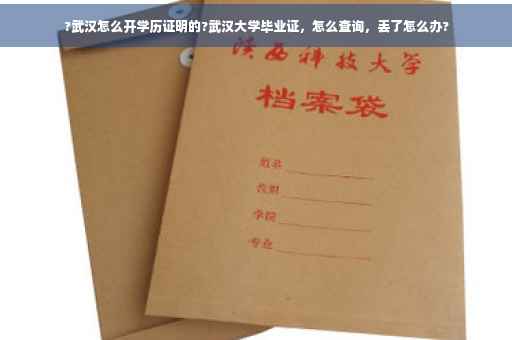 ?武汉怎么开学历证明的?武汉大学毕业证，怎么查询，丢了怎么办?
陕西科技大学
档案袋
姓名
学院
专业